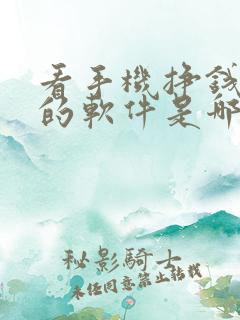 看手機掙錢
的軟件是哪
秘影騎士
未经同意禁止转载